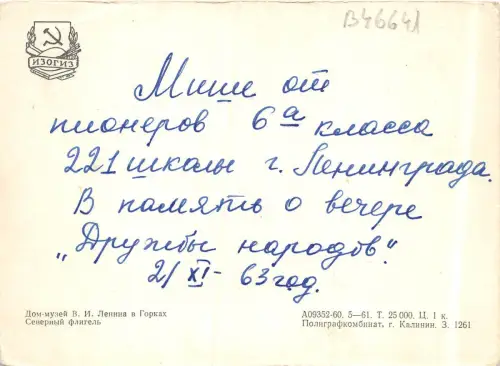 В46641
ИЗОГИЗ
Мише от
пионеров 6а класса
221 школы г. Ленинграда.
В память о вечере
„Дружбы народов".
2/XI- 63 год.
Дом-музей В. И. Ленина в Горках
Северный флигель
А09352-60. 5—61. Т. 25 000. Ц. 1 к.
Полиграфкомбинат, г. Калинин. З. 1261